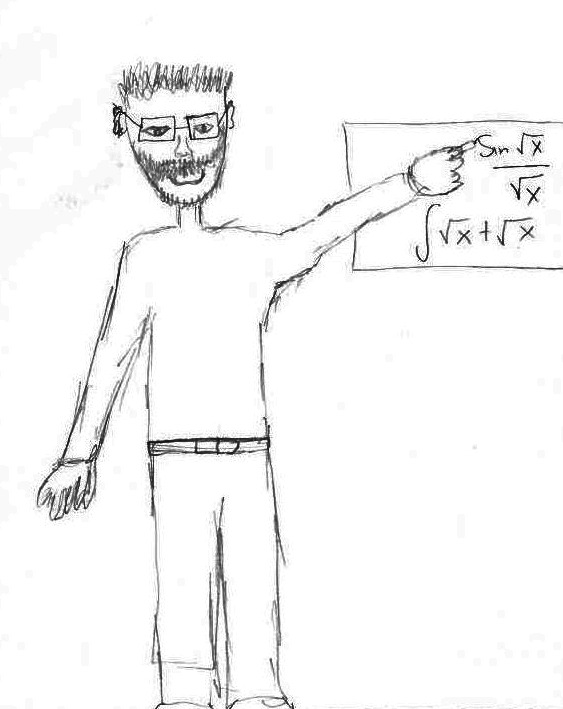 Sin √x
√x
∫ √x + √x